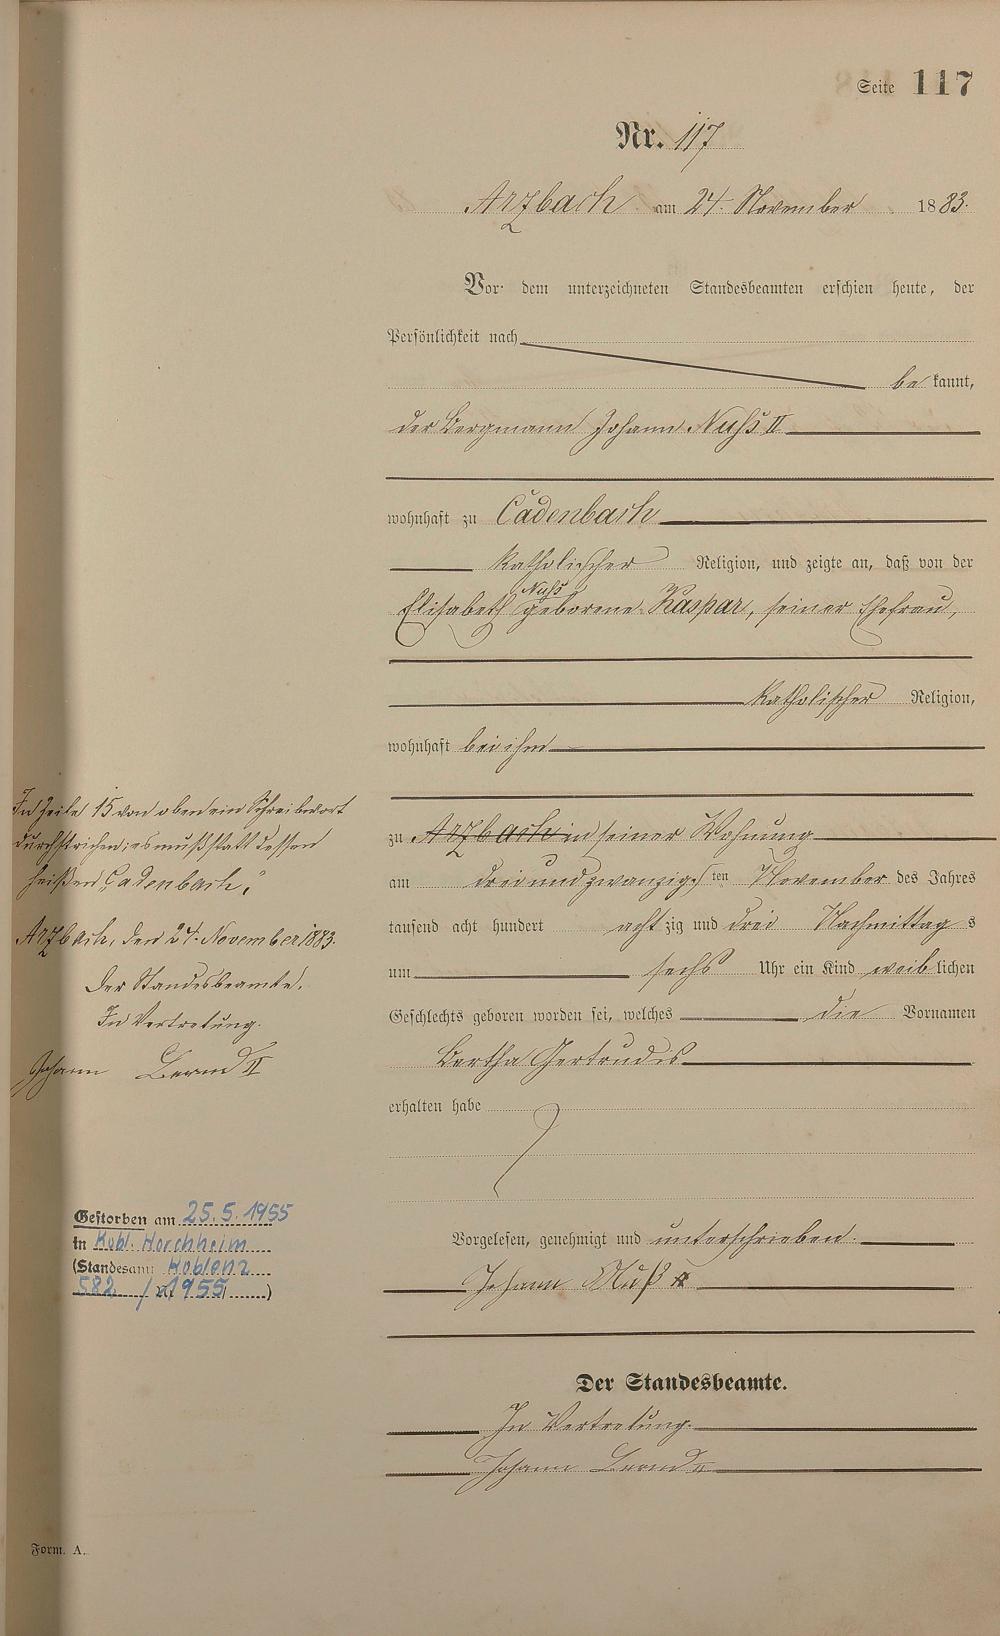 Seite 117
Nr. 117
Arzbach am 24. November 1883.
Vor dem unterzeichneten Standesbeamten erschien heute, der
Persönlichkeit nach
be kannt,
der Bergmann Johann Nuhs II
wohnhaft zu Cadenbach
katholischer Religion, und zeigte an, daß von der
Nuhs
Elisabeth geborene Kaspar, seiner Ehefrau,
katholischer Religion,
wohnhaft bei ihm
zu Arzbach in seiner Wohnung
am dreiundzwanzigsten November des Jahres
tausend acht hundert acht zig und drei Nachmittag s
um sechs Uhr ein Kind weib lichen
Geschlechts geboren worden sei, welches die Vornamen
Bertha Gertrudis
erhalten habe
Vorgelesen, genehmigt und unterschrieben.
Johann Nuß II
Der Standesbeamte.
In Vertretung.
Johann Bernd II
In Zeile 15 von oben ein Schreibwort
durchstrichen; es muß statt dessen
heißen „Cadenbach."
Arzbach, den 24. November 1883.
Der Standesbeamte.
In Vertretung.
Johann Bernd II
Gestorben am 25.5.1955
in Kobl. Horchheim
(Standesamt Koblenz
582 / 1955)
Form. A.